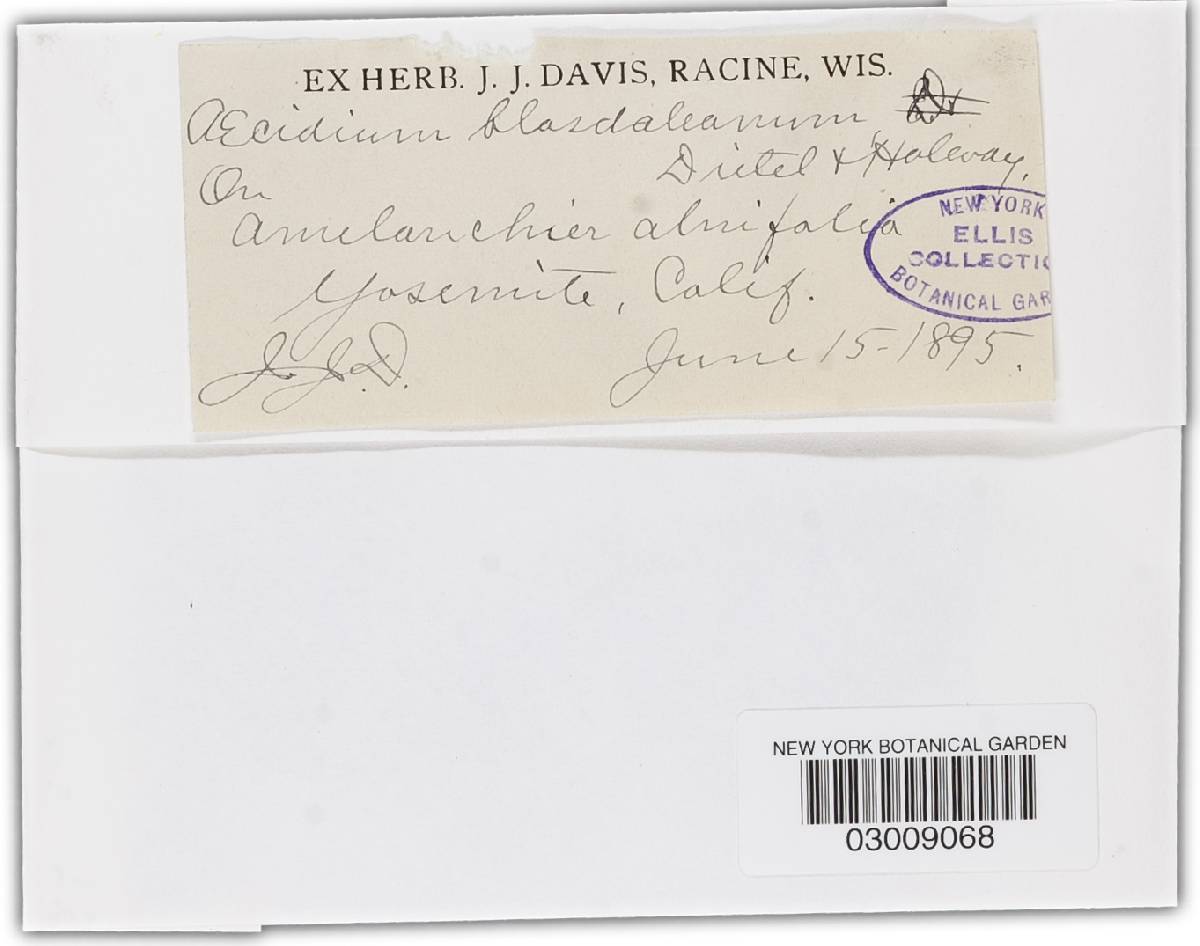 EX HERB. J. J. DAVIS, RACINE, WIS.
Æcidium blasdaleanum
Dietel & Holway.
On
Amelanchier alnifolia
Yosemite, Calif.
J. J. D. June 15-1895.
NEW YORK
ELLIS
COLLECTIO
BOTANICAL GAR
NEW YORK BOTANICAL GARDEN
03009068